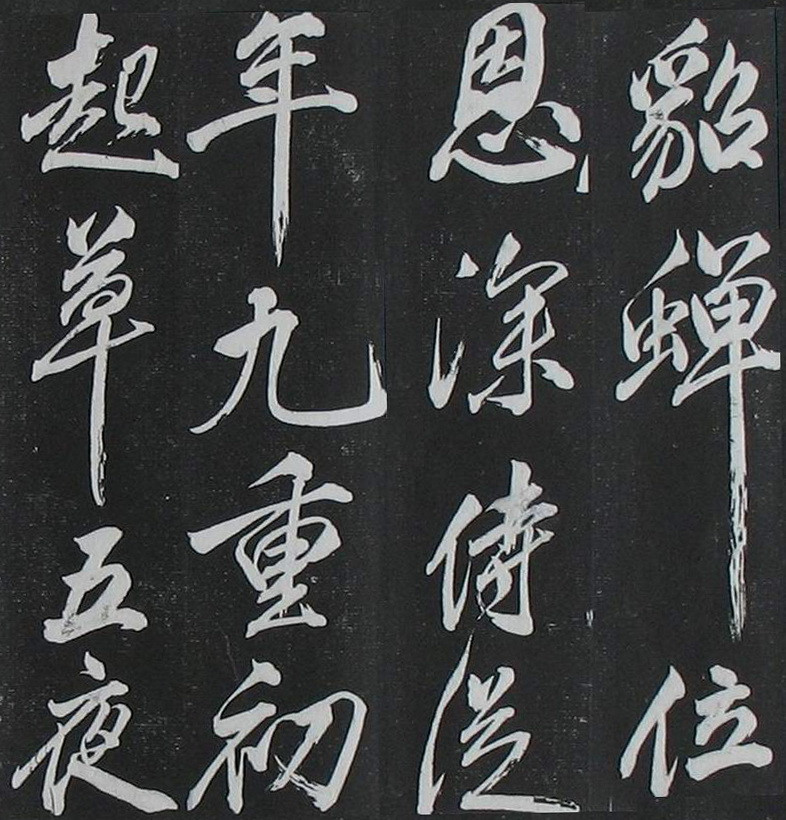 貂蟬位
恩深侍從
年九重初
起草五夜